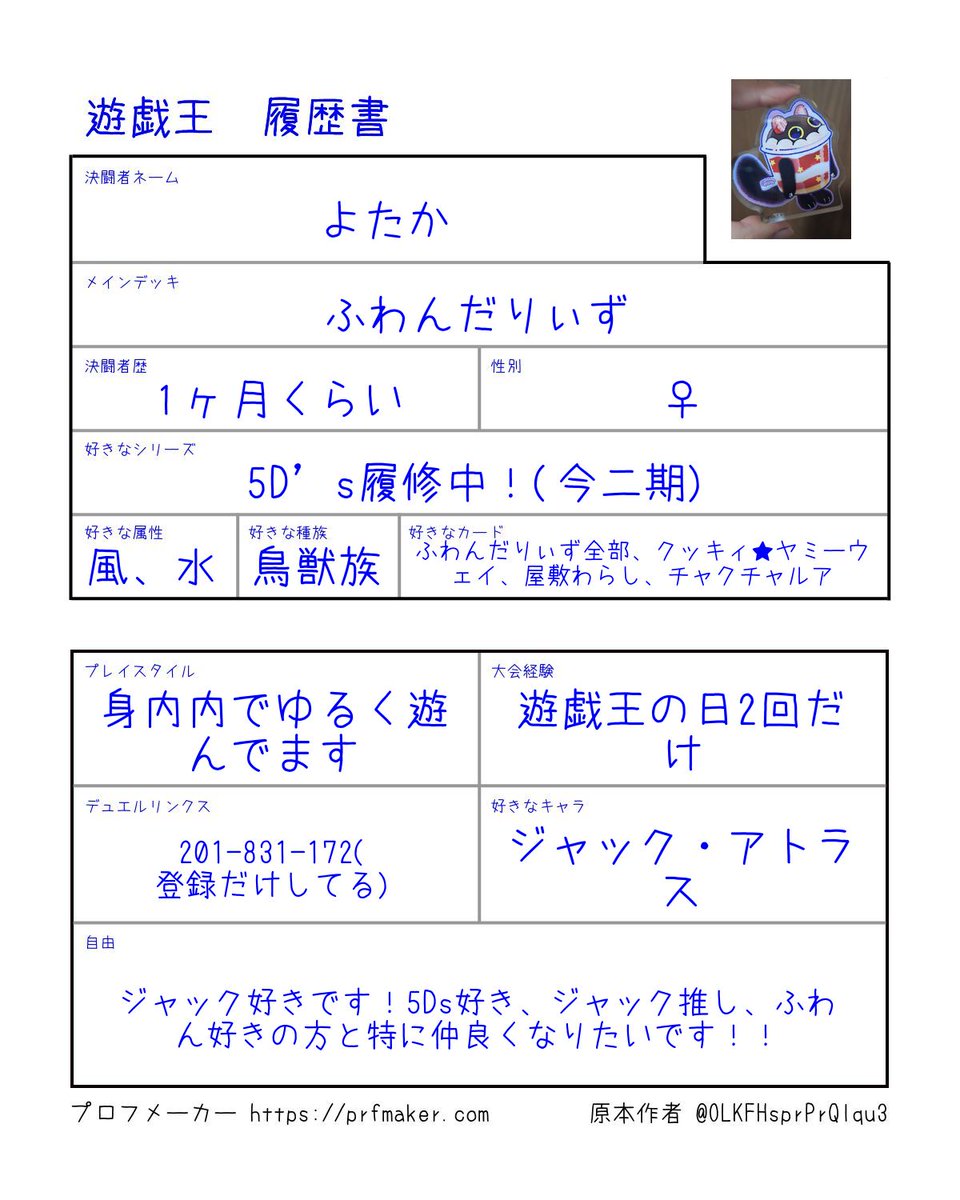 遊戯王　履歴書
決闘者ネーム
よたか
メインデッキ
ふわんだりぃず
決闘者歴
1ヶ月くらい
性別
♀
好きなシリーズ
5D’s履修中！(今二期)
好きな属性
風、水
好きな種族
鳥獣族
好きなカード
ふわんだりぃず全部、クッキィ★ヤミーウ
ェイ、屋敷わらし、チャクチャルア
プレイスタイル
身内内でゆるく遊
んでます
大会経験
遊戯王の日2回だ
け
デュエルリンクス
201-831-172(
登録だけしてる)
好きなキャラ
ジャック・アトラ
ス
自由
ジャック好きです！5Ds好き、ジャック推し、ふわ
ん好きの方と特に仲良くなりたいです！！
プロフメーカー https://prfmaker.com
原本作者 @OLKFHsprPrQlqu3